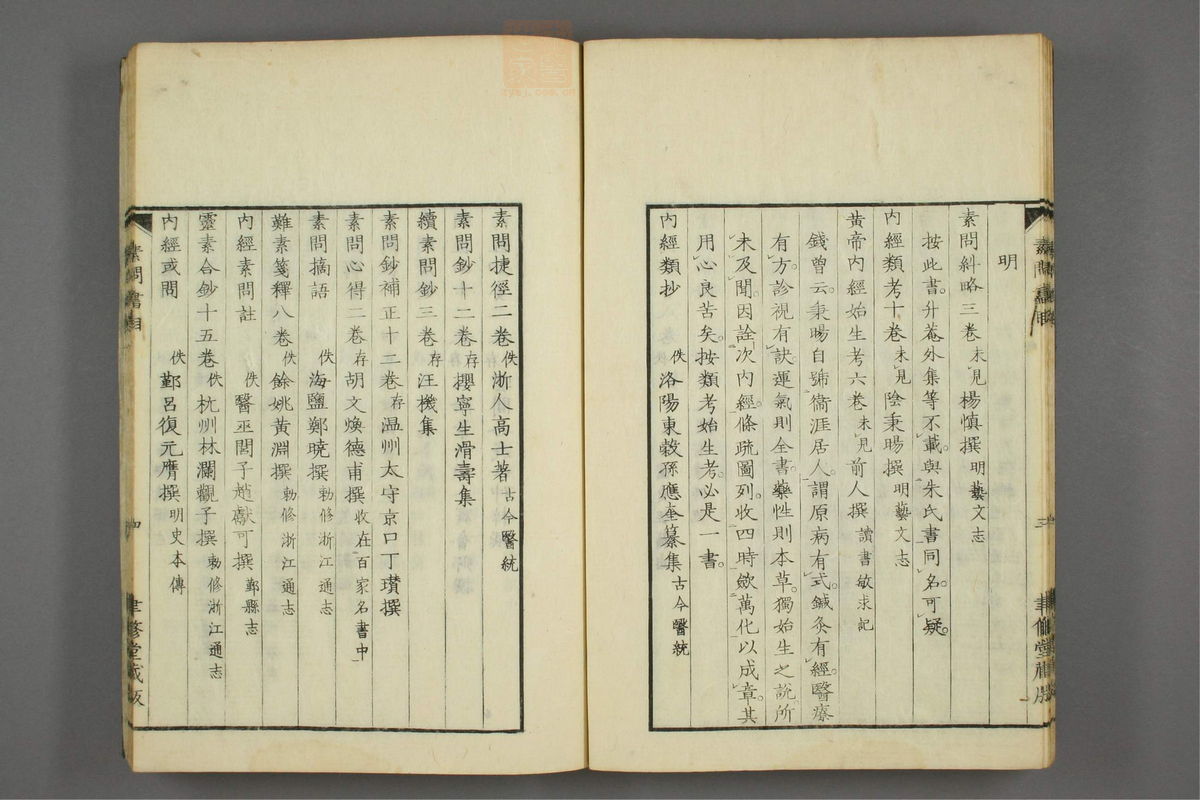 明
素問糾略三卷未見楊慎撰明藝文志
按此書。升菴外集等不載。與朱氏書同名。可疑。
內經類考十卷未見陰秉暘撰明藝文志
黃帝內經始生考六卷未見前人撰讀書敏求記
錢曾云。秉暘自號衞涯居人。謂原病有式。鍼灸有經。醫療
有方。診視有訣。運氣則全書。藥性則本草。獨始生之說所
未及聞。因詮次內經。條疏圖列。收四時斂萬化以成章。其
用心良苦矣。按類考始生考。必是一書。
內經類抄佚洛陽東穀孫應奎纂集古今醫統
素問書目
二
聿修堂藏版
素問捷徑二卷佚浙人高士著古今醫統
素問鈔十二卷存攖寧生滑壽集
續素問鈔三卷存汪機集
素問鈔補正十二卷存溫州太守京口丁瓚撰
素問心得二卷存胡文煥德甫撰收在百家名書中
素問摘語佚海鹽鄭曉撰勅修浙江通志
難素箋釋八卷佚餘姚黃淵撰勅修浙江通志
內經素問註佚醫巫閭子趙獻可撰鄞縣志
靈素合鈔十五卷佚杭州林瀾觀子撰勅修浙江通志
內經或問佚鄞呂復元膺撰明史本傳
素問書目
聿修堂藏版